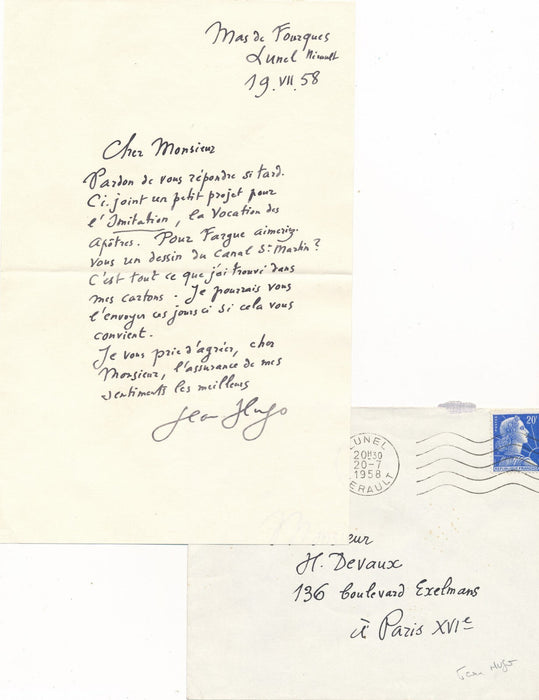 Mas de Fourques
Lunel Hérault
19.VII.58
Cher Monsieur
Pardon de vous répondre si tard.
Ci-joint un petit projet pour
l'Imitation, la Vocation des
Apôtres. Pour Fargue aimeriez-
vous un dessin du Canal St Martin ?
C'est tout ce que j'ai trouvé dans
mes cartons. Je pourrais vous
l'envoyer ces jours ci si cela vous
convient.
Je vous prie d'agréer, cher
Monsieur, l'assurance de mes
sentiments les meilleurs
Jean Hugo
LUNEL
20H30
20-7
1958
HERAULT
20F
Monsieur
H. Devaux
136 boulevard Exelmans
à Paris XVIe
Jean Hugo